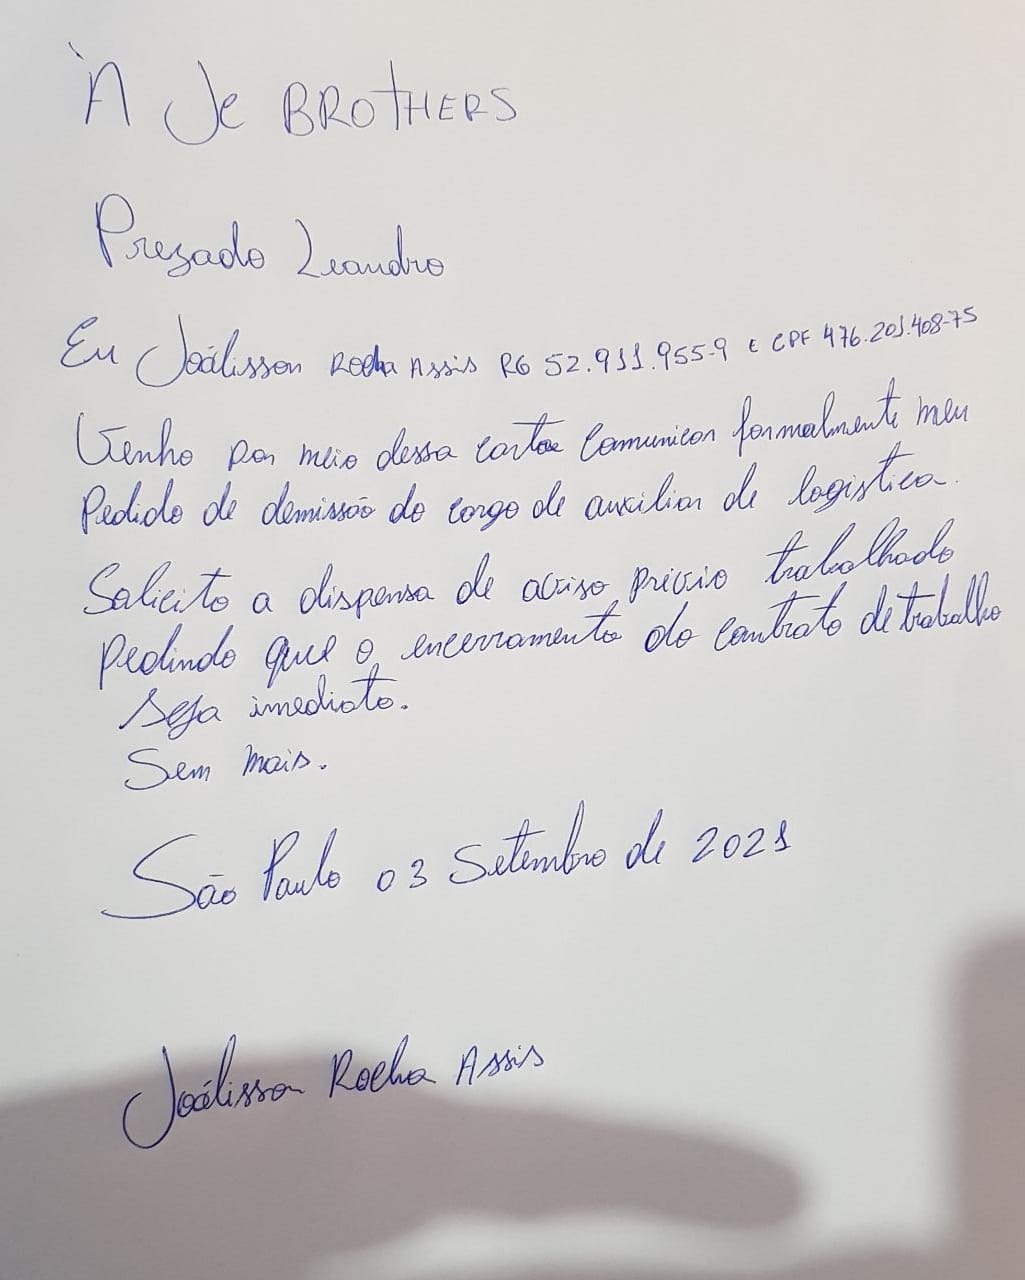 À Je BROTHERS
Prezado Leandro
Eu Joálisson Rocha Assis RG 52.911.955-9 E CPF 476.201.408-75
Venho por meio dessa carta Comunicar formalmente meu
Pedido de demissão do cargo de auxiliar de logistica.
Solicito a dispensa de aviso prévio trabalhado
Pedindo que o encerramento do contrato de trabalho
seja imediato.
Sem mais.
São Paulo 03 Setembro de 2021
Joálisson Rocha Assis